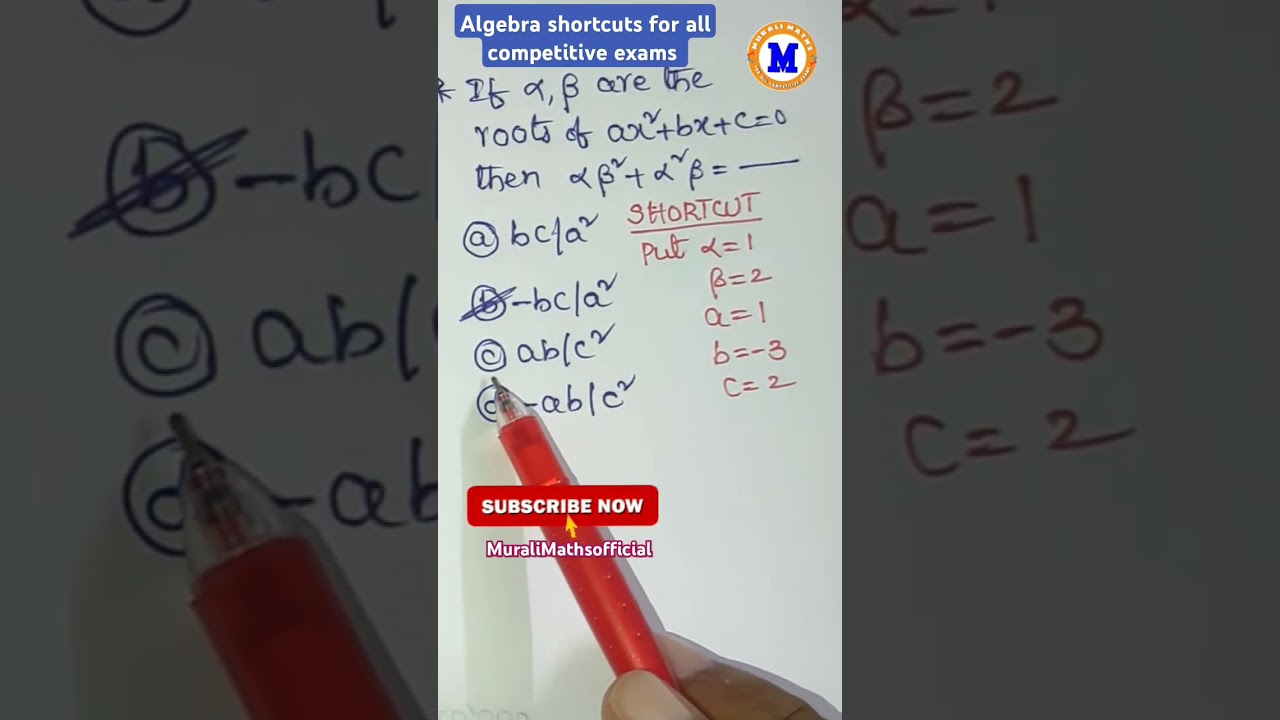 Algebra shortcuts for all
competitive exams
MURALI MATHS
M
* If α, β are the
roots of ax²+bx+c=0
then αβ²+α²β = —
ⓐ bc/a²
ⓑ -bc/a²
ⓒ ab/c²
ⓓ -ab/c²
SHORTCUT
Put α=1
β=2
a=1
b=-3
c=2
SUBSCRIBE NOW
MuraliMathsofficial
ⓑ -bc
ⓒ ab/
ⓓ -ab
α=1
β=2
a=1
b=-3
c=2